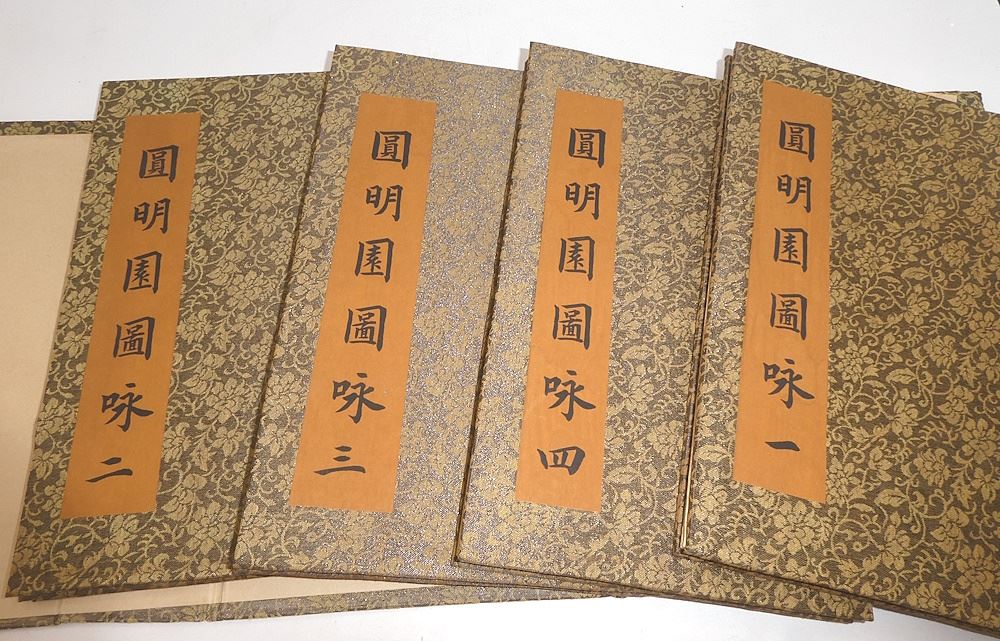 圓明園圖咏二
圓明園圖咏三
圓明園圖咏四
圓明園圖咏一